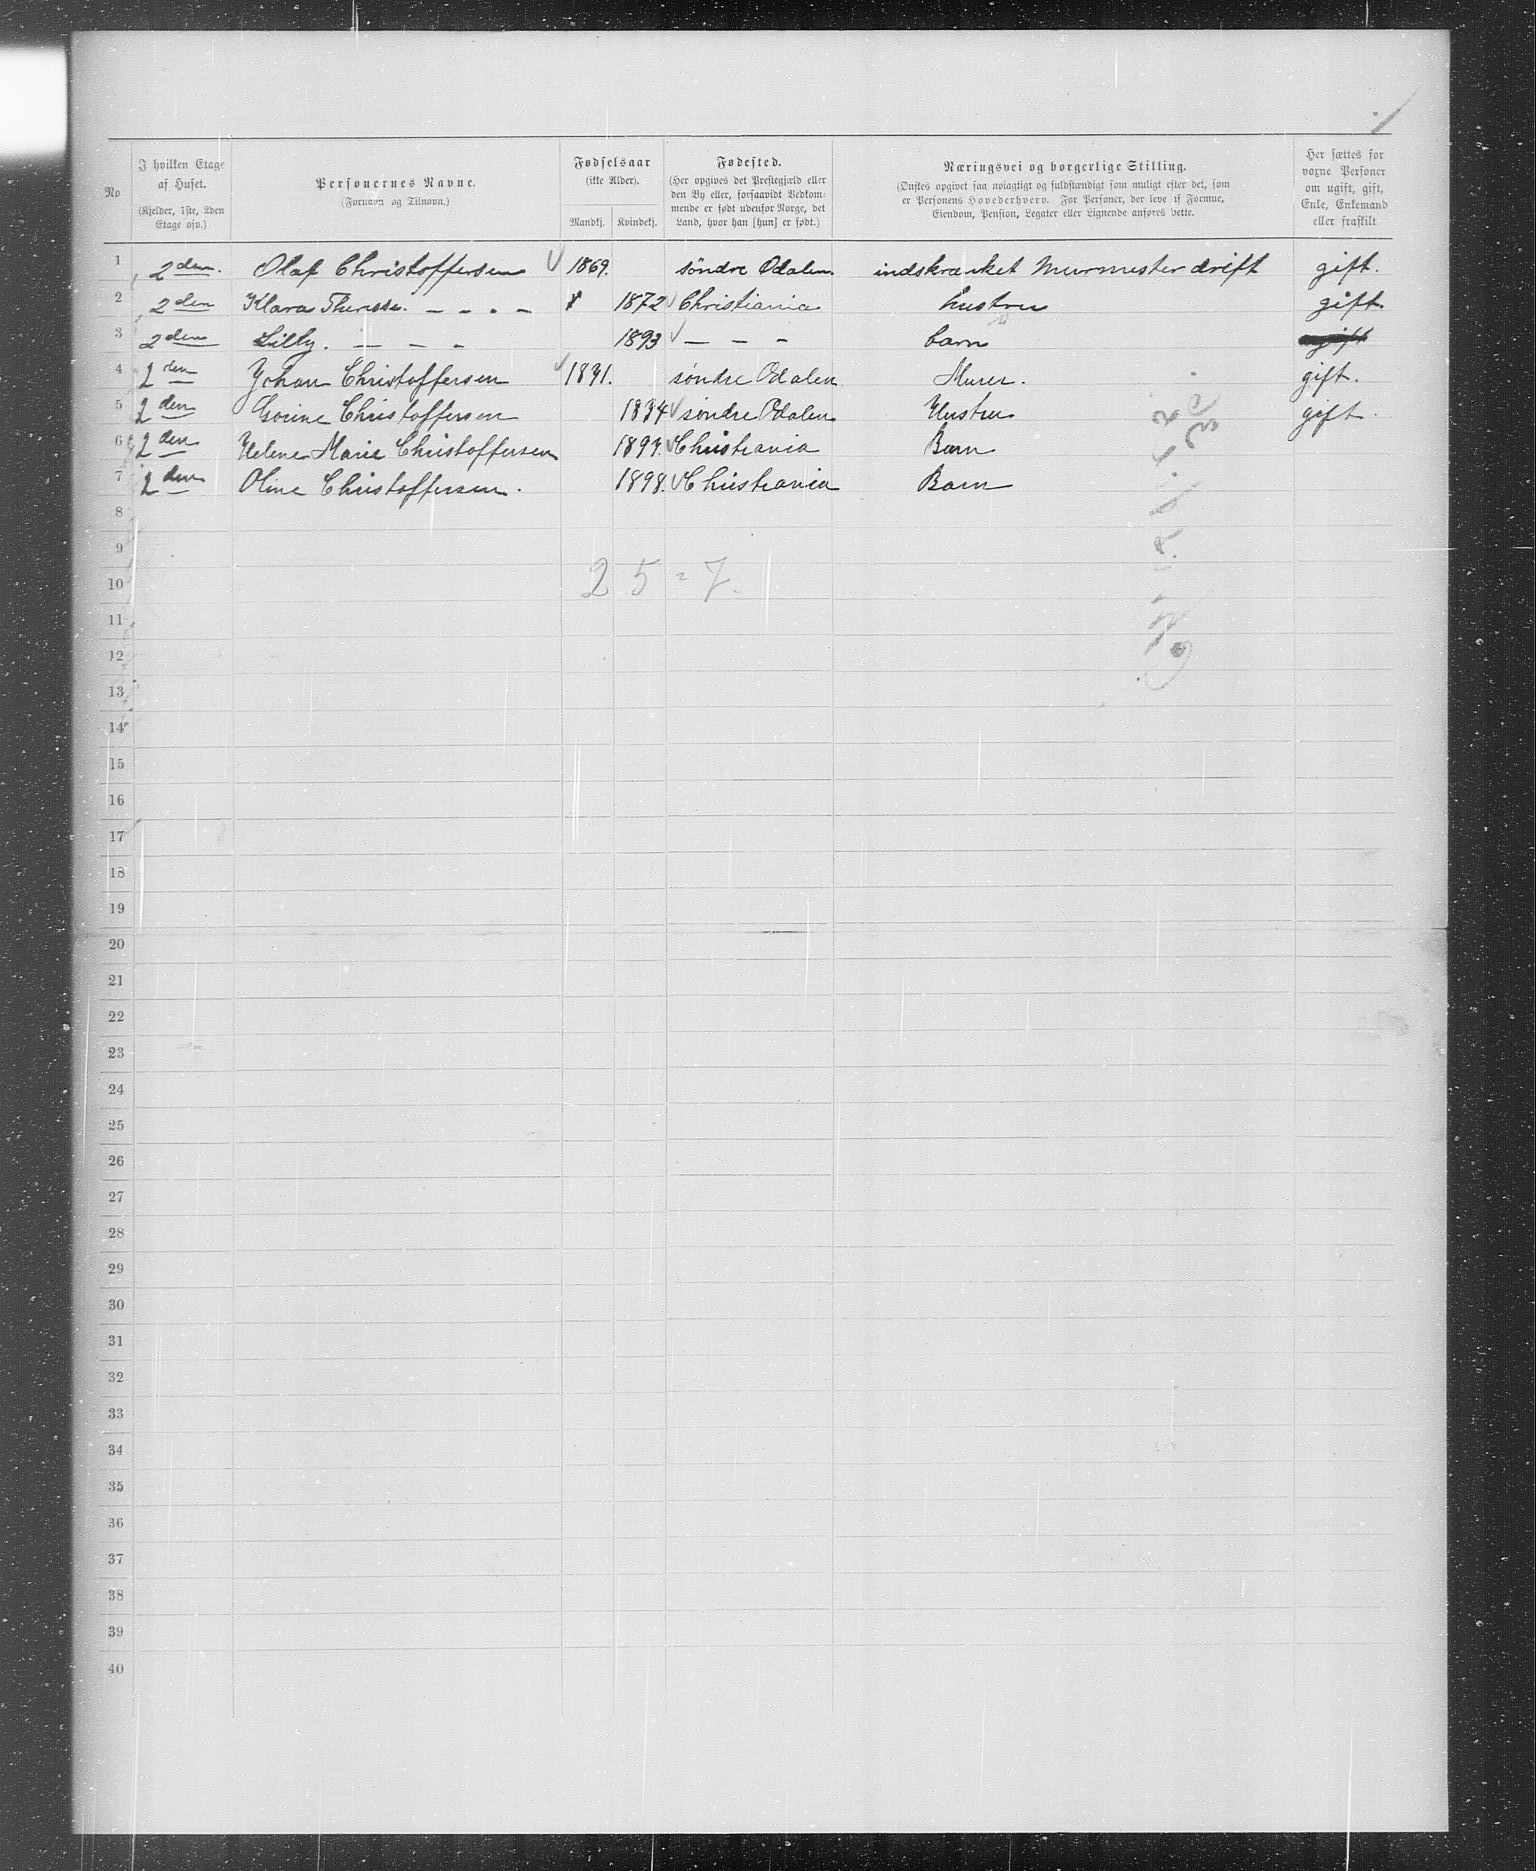 No
I hvilken Etage af Huset.
(Kjelder, 1ste, 2den Etage osv.)
Personernes Navne.
(Fornavn og Tilnavn.)
Fødselsaar
(ikke Alder).
Mandkj.
Kvindekj.
Fødested.
(Her opgives det Prestegjæld eller den By eller, forsaavidt Vedkommende er født udenfor Norge, det Land, hvor han [hun] er født.)
Næringsvei og borgerlige Stilling.
(Ønskes opgivet saa nøiagtigt og fuldstændigt som muligt efter det, som er Personens Hovederhverv. For Personer, der leve af Formue, Eiendom, Pension, Legater eller Lignende anføres dette.)
Her sættes for voxne Personer om ugift, gift, Enke, Enkemand eller fraskilt.
1 2den. Olaf Christoffersen 1869. søndre Odalen. indskrænket Murmester drift gift.
2 2den Klara Therese. — - - - 1872 Christiania hustru gift.
3 2den Lilly. — - - 1893 — - - barn
4 2den Johan Christoffersen 1871. søndre Odalen Murer. gift.
5 2den Gorine Christoffersen 1874 søndre Odalen Hustru gift.
6 2den Helene Marie Christoffersen 1897. Christiania Barn
7 2den Oline Christoffersen. 1898. Christiania Barn
8
9
10 25 = 7.
11
12
13
14
15
16
17
18
19
20
21
22
23
24
25
26
27
28
29
30
31
32
33
34
35
36
37
38
39
40